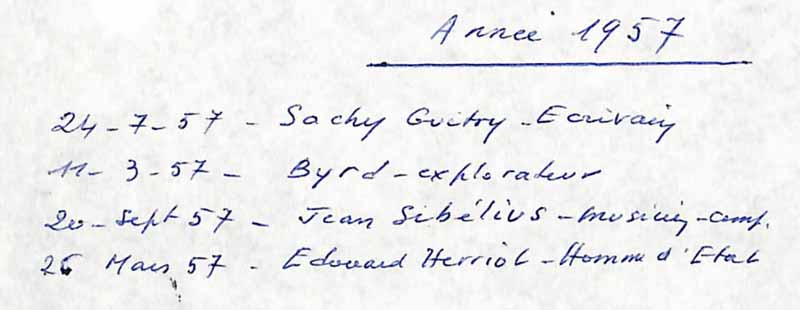 Année 1957
24-7-57 - Sachy Guitry - Ecrivain
11-3-57 - Byrd - explorateur
20-Sept 57 - Jean Sibélius - musicien - comp.
26 Mars 57 - Edouard Herriot - Homme d'Etat